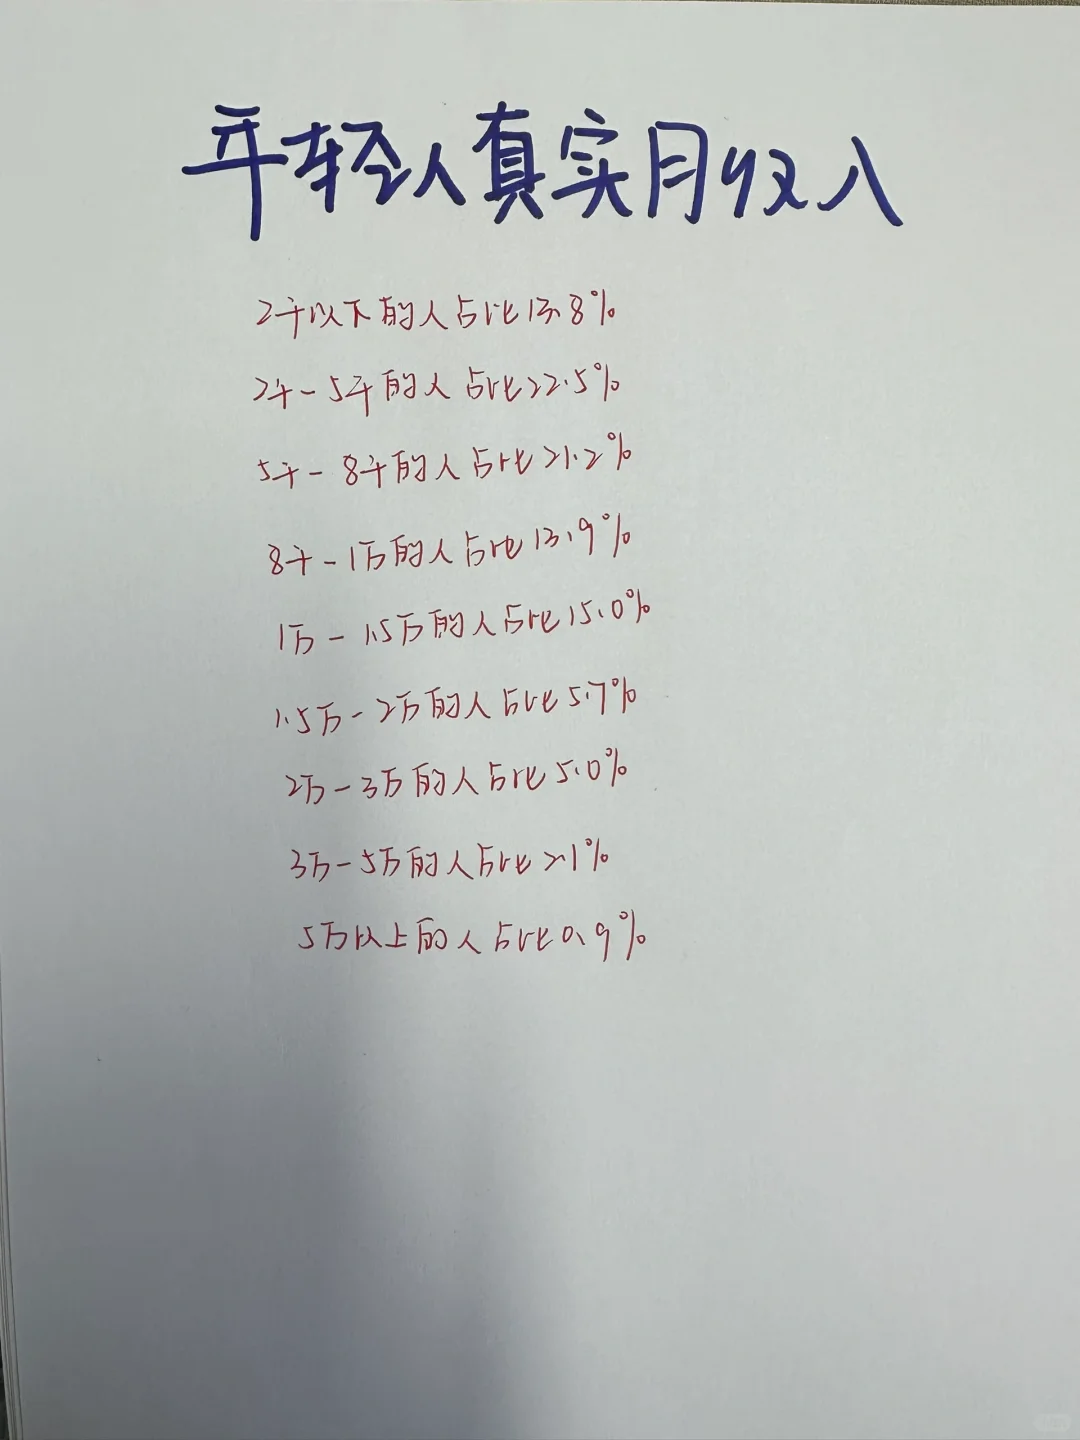 年轻人真实月收入
2千以下的人占比13.8%
2千-5千的人占比22.5%
5千-8千的人占比21.2%
8千-1万的人占比13.9%
1万-1.5万的人占比15.0%
1.5万-2万的人占比5.7%
2万-3万的人占比5.0%
3万-5万的人占比2.1%
5万以上的人占比0.9%